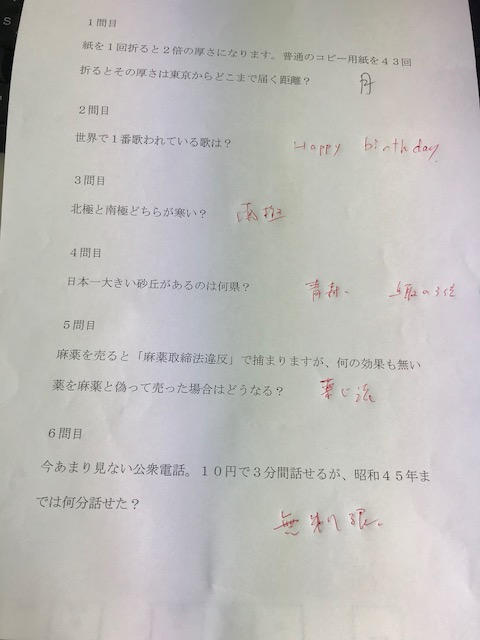 1問目
紙を1回折ると2倍の厚さになります。普通のコピー用紙を43回
折るとその厚さは東京からどこまで届く距離?
月
2問目
世界で1番歌われている歌は?
Happy birthday
3問目
北極と南極どちらが寒い?
南極
4問目
日本一大きい砂丘があるのは何県?
青森、 鳥取の3倍
5問目
麻薬を売ると「麻薬取締法違反」で捕まりますが、何の効果も無い
薬を麻薬と偽って売った場合はどうなる?
薬じ法
6問目
今あまり見ない公衆電話。10円で3分間話せるが、昭和45年ま
では何分話せた?
無制限。